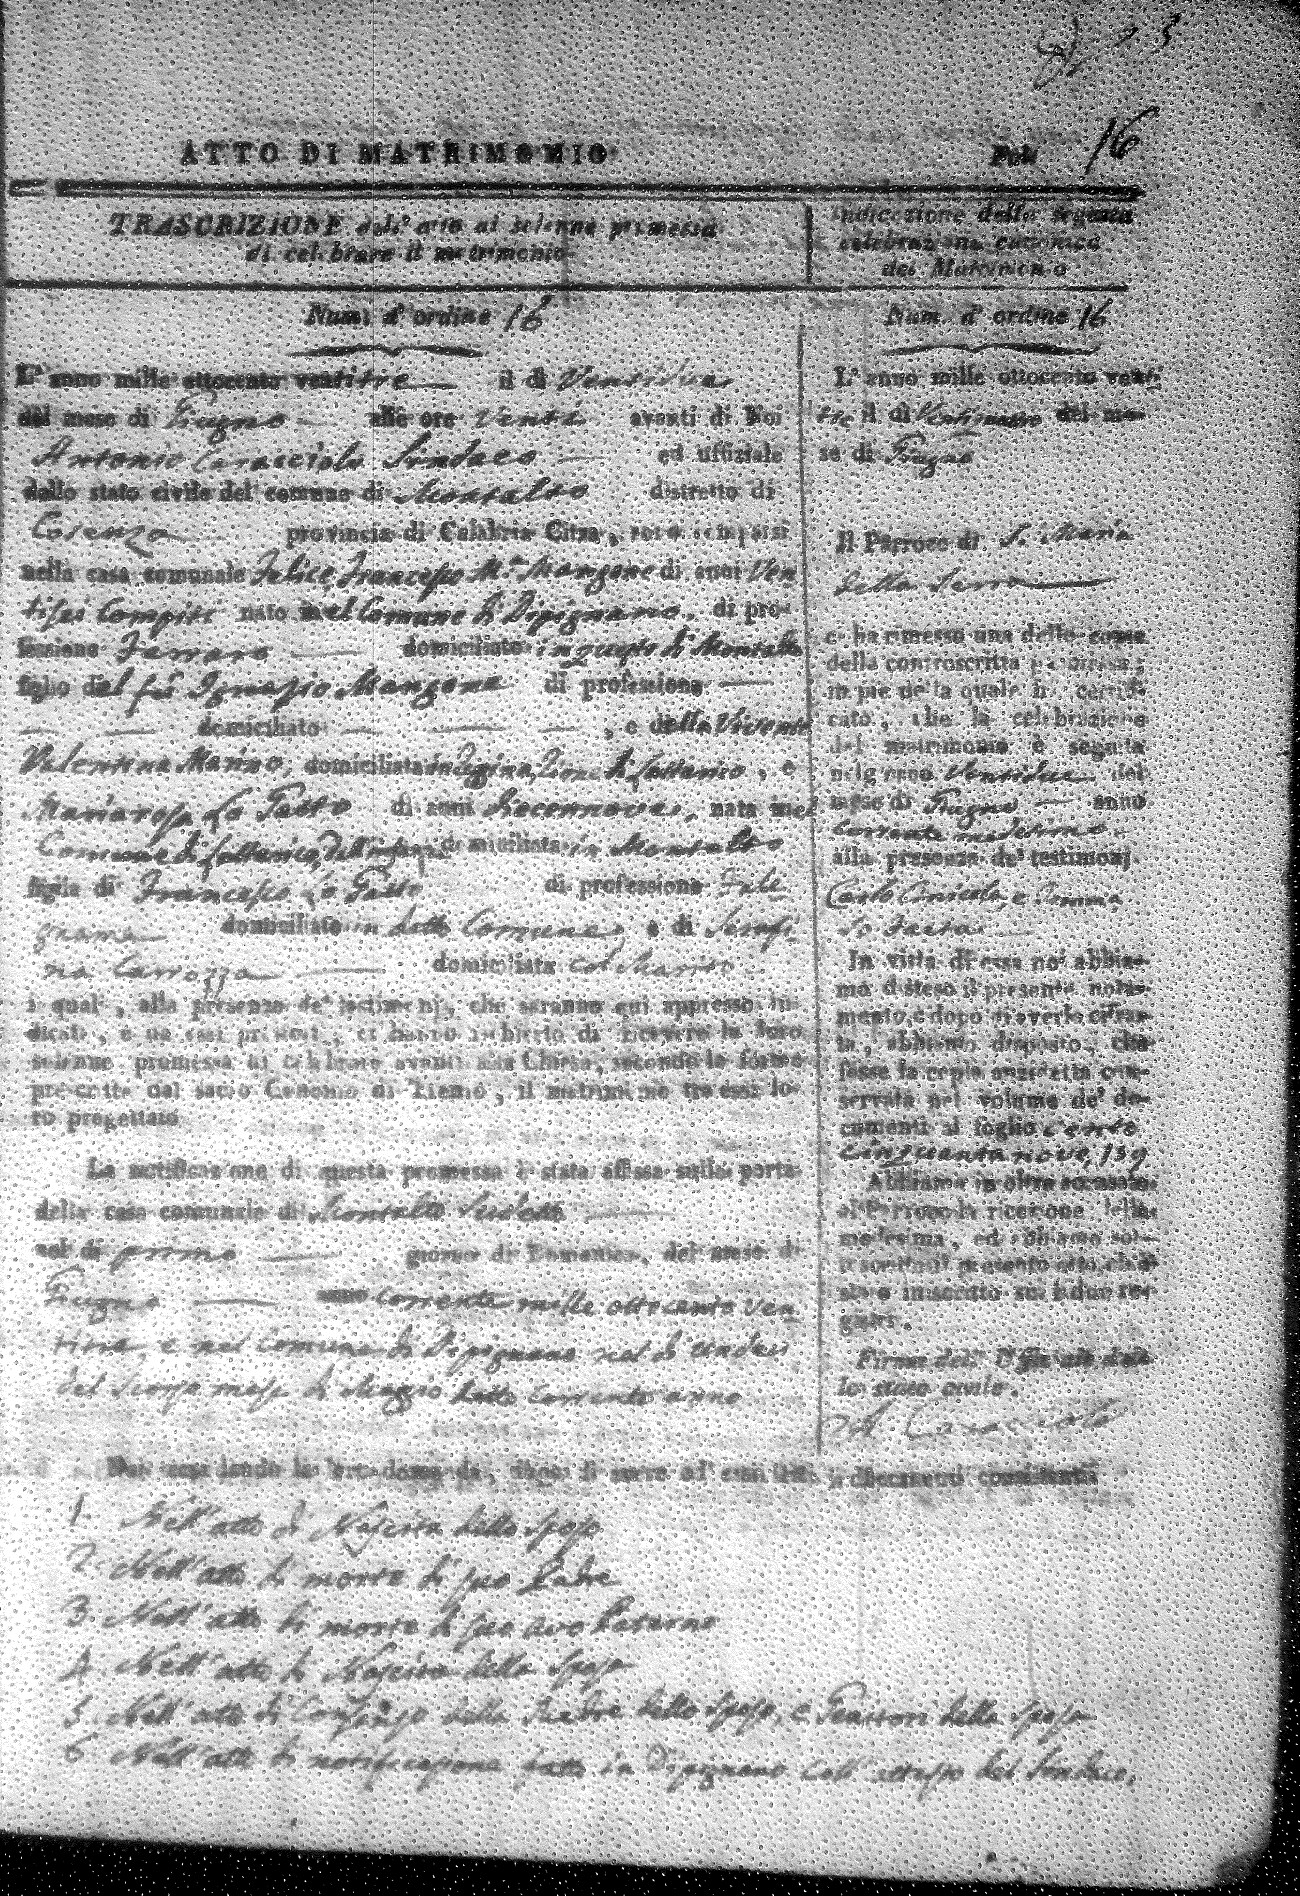 ATTO DI MATRIMONIO
Fol. 16
TRASCRIZIONE dell' atto di solenne promessa
di celebrare il matrimonio
Num. d' ordine 16
L' anno mille ottocento ventitre il di Ventidue
del mese di Giugno alle ore Venti avanti di Noi
Antonio Caracciolo Sindaco ed uffiziale
dello stato civile del comune di Montalto distretto di
Cosenza provincia di Calabria Citra, sono comparsi
nella casa comunale Felice, Francesco M.a Mangone di anni Ven
tisei Compiti nato nel Comune di Dipignano, di pro-
fessione Ferraro domiciliato in questo di Montalto
figlio del fu Ignazio Mangone di professione
domiciliato , e della Vivente
Valentina Marino, domiciliata in di Lattarico, e
Mariarosa Lo Gatto di anni Diecennove, nata nel
Comune di Lattarico, domiciliata in Montalto
figlia di Francesco Lo Gatto di professione Fale
gname domiciliato in detto Comune, e di Serafi-
na Carrozza domiciliata col Marito
i quali, alla presenza de' testimonj, che saranno qui appresso in-
dicati, e da essi prodotti, ci hanno richiesto di ricevere la loro
solenne promessa di celebrare avanti alla Chiesa, secondo le forme
prescritte dal sacro Concilio di Trento, il matrimonio tra essi lo-
ro progettato
La notificazione di questa promessa è stata affissa sulla porta
della casa comunale di Montalto Sudetto
nel di primo giorno di Domenica, del mese di
Giugno anno Corrente mille ottocento Ven
titre, e nel Comune di Dipignano nel di undeci
del scorso mese di Maggio detto Corrente anno
Indicazione della seguita
celebrazione canonica
del Matrimonio
Num. d' ordine 16
L' anno mille ottocento venti-
tre il di Ventiquattro del me-
se di Giugno
Il Parroco di S. Maria
della Serra
ci ha rimesso una delle copie
della controscritta promessa;
in piè della quale ha certifi-
cato, che la celebrazione
del matrimonio è seguita
nel giorno Ventidue del
mese di Giugno anno
Corrente medesimo
alla presenza de' testimonj
Carlo Cinicola, e Tomma
so
In vista di essa noi abbia-
mo disteso il presente nota-
mento, e dopo di averla cifra-
ta, abbiamo disposto, che
fosse la copia anzidetta con-
servata nel volume de' do-
cumenti al foglio cento
cinquantanove, 159
Abbiamo in oltre accusato
al Parroco la ricezione della
medesima, ed abbiamo sot-
toscritto il presente atto, ch' è
stato inscritto sui i due re-
gistri.
Firma dell' Uffiziale del-
lo stato civile.
A Caracciolo
Noi secondando la loro domanda, dopo di aver ad essi letti i documenti consistenti
1. Nell' atto di Nascita dello sposo
2. Nell' atto di morte di suo Padre
3. Nell' atto di morte di suo avo Paterno
4. Nell' atto di Nascita della sposa
5. Nell' atto di Consenso della Madre dello sposo, e Genitori della sposa
6. Nell' atto di notificazione fatta in Dipignano coll' attesto del Sindaco,